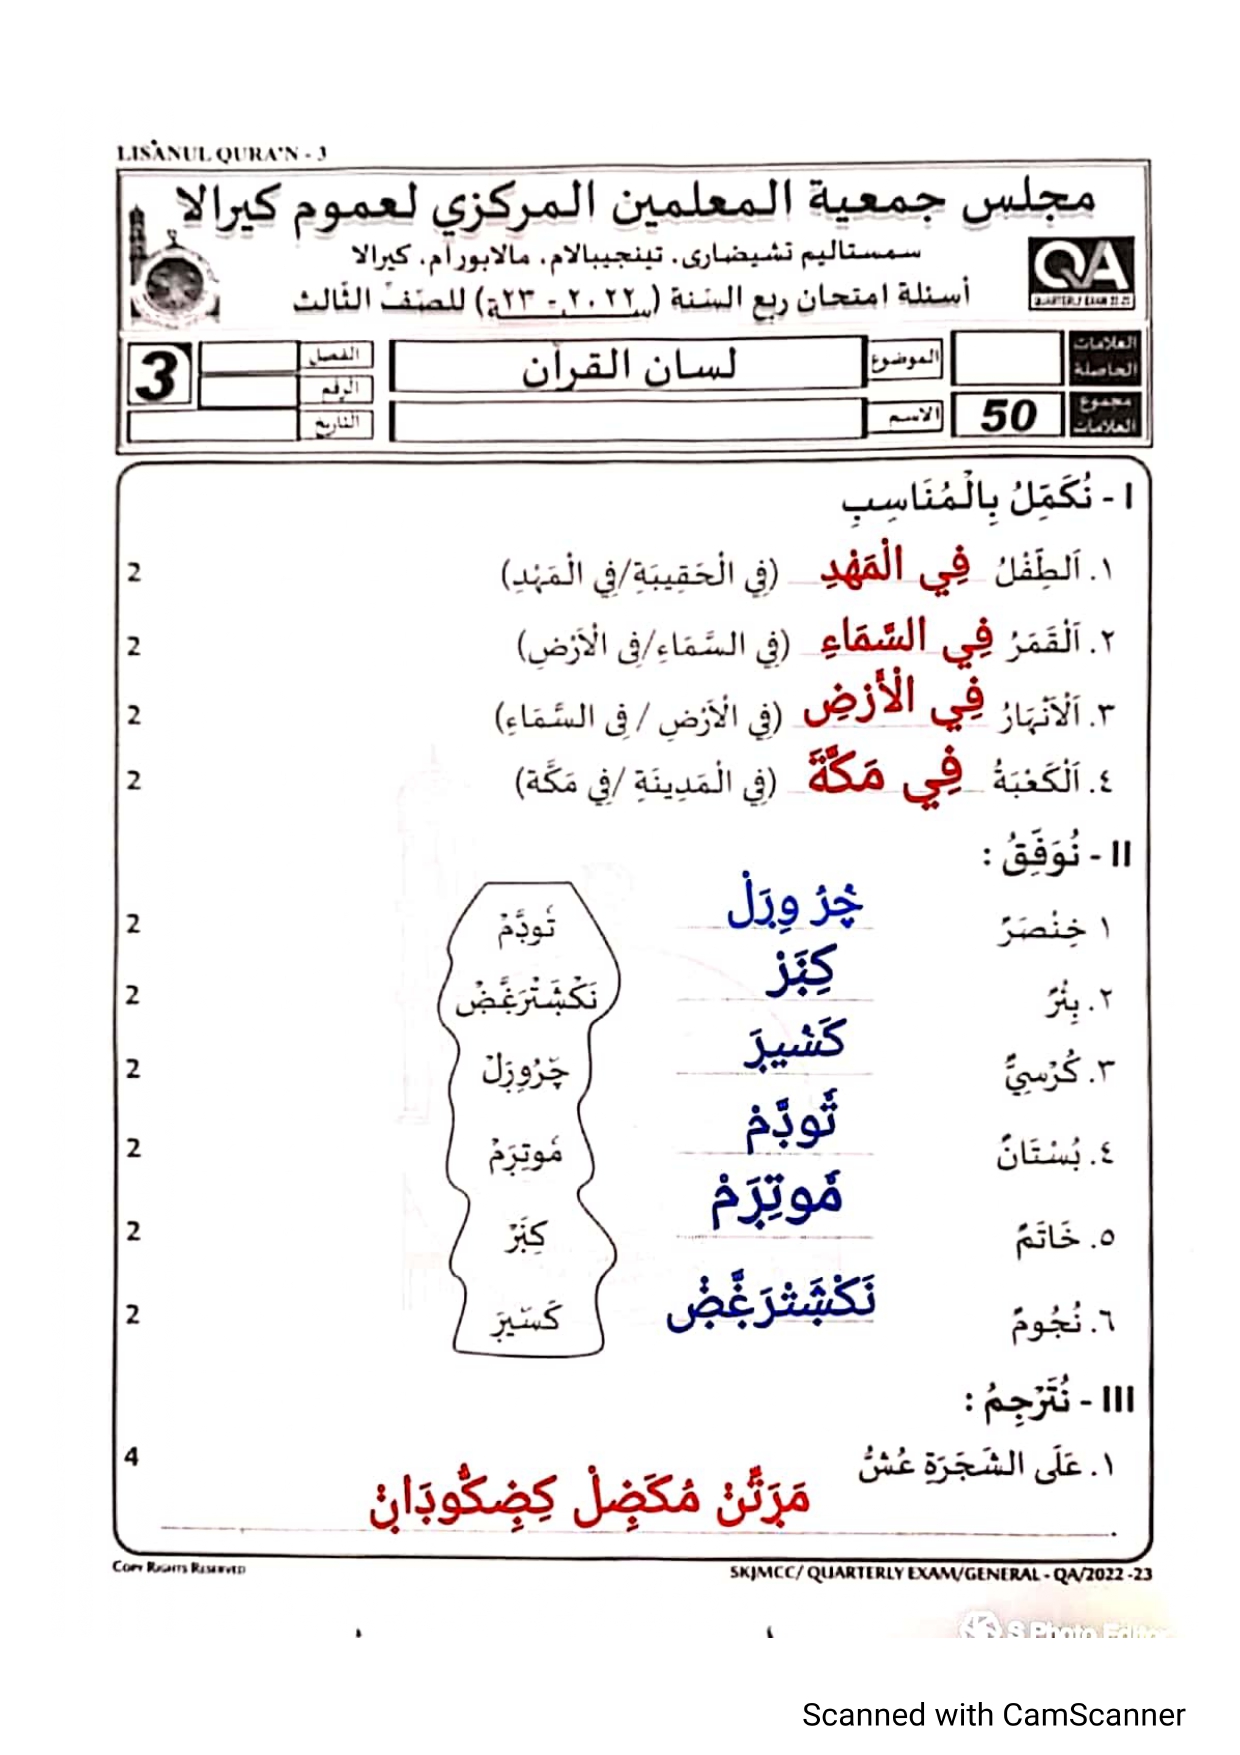 LISANUL QURA'N - 3
مجلس جمعية المعلمين المركزي لعموم كيرالا
سمستاليم تشيضاري، تينجيبالام، مالابورام، كيرالا
أسئلة امتحان ربع السنة (٢٠٢٢ - ٢٣ة) للصف الثالث
QA
QUARTERLY EXAM 22-23
العلامات الحاصلة
الموضوع
لسان القرآن
الفصل
3
الرقم
مجموع العلامات
50
الاسم
التاريخ
I - نُكَمِّلُ بِالْمُنَاسِبِ
١. اَلطِّفْلُ فِي الْمَهْدِ (فِي الْحَقِيبَةِ/فِي الْمَهْدِ) 2
٢. اَلْقَمَرُ فِي السَّمَاءِ (فِي السَّمَاءِ/فِى الْاَرْضِ) 2
٣. اَلْاَنْهَارُ فِي الْأَرْضِ (فِي الْاَرْضِ / فِى السَّمَاءِ) 2
٤. اَلْكَعْبَةُ فِي مَكَّةَ (فِي الْمَدِينَةِ /فِي مَكَّة) 2
II - نُوَفِّقُ :
١ خِنْصَرٌ چرُورَلْ تودَّمْ 2
٢. بِئْرٌ كِنَرْ نَكْشَتْرَغَّضْ 2
٣. كُرْسِيٌّ كَشيرَ چرُورَلْ 2
٤. بُسْتَانٌ تودَّمْ مُوتِرَمْ 2
٥. خَاتَمٌ مُوتِرَمْ كِنَرْ 2
٦. نُجُومٌ نَكْشَتْرَغَّضْ كَسّيرَ 2
III - نُتَرْجِمُ :
١. عَلَى الشَّجَرَةِ عُشٌّ 4
مَرَتِّنْ مُكَضِلْ كِضِكُّودَانْ
COPY RIGHTS RESERVED
SKJMCC/ QUARTERLY EXAM/GENERAL - QA/2022 -23
S Photo Editor
Scanned with CamScanner